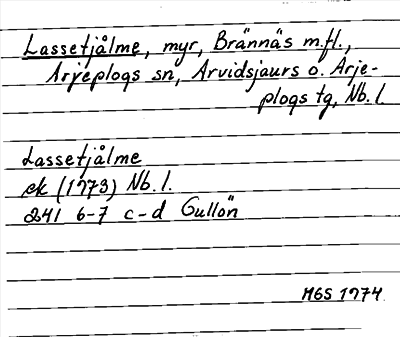 Lassetjålme, myr, Brännäs m.fl.,
Arjeplogs sn, Arvidsjaurs o. Arje-
plogs tg, Nb. l.
Lassetjålme
ek (1973) Nb. l.
24I 6-7 c-d Gullön
MGS 1974